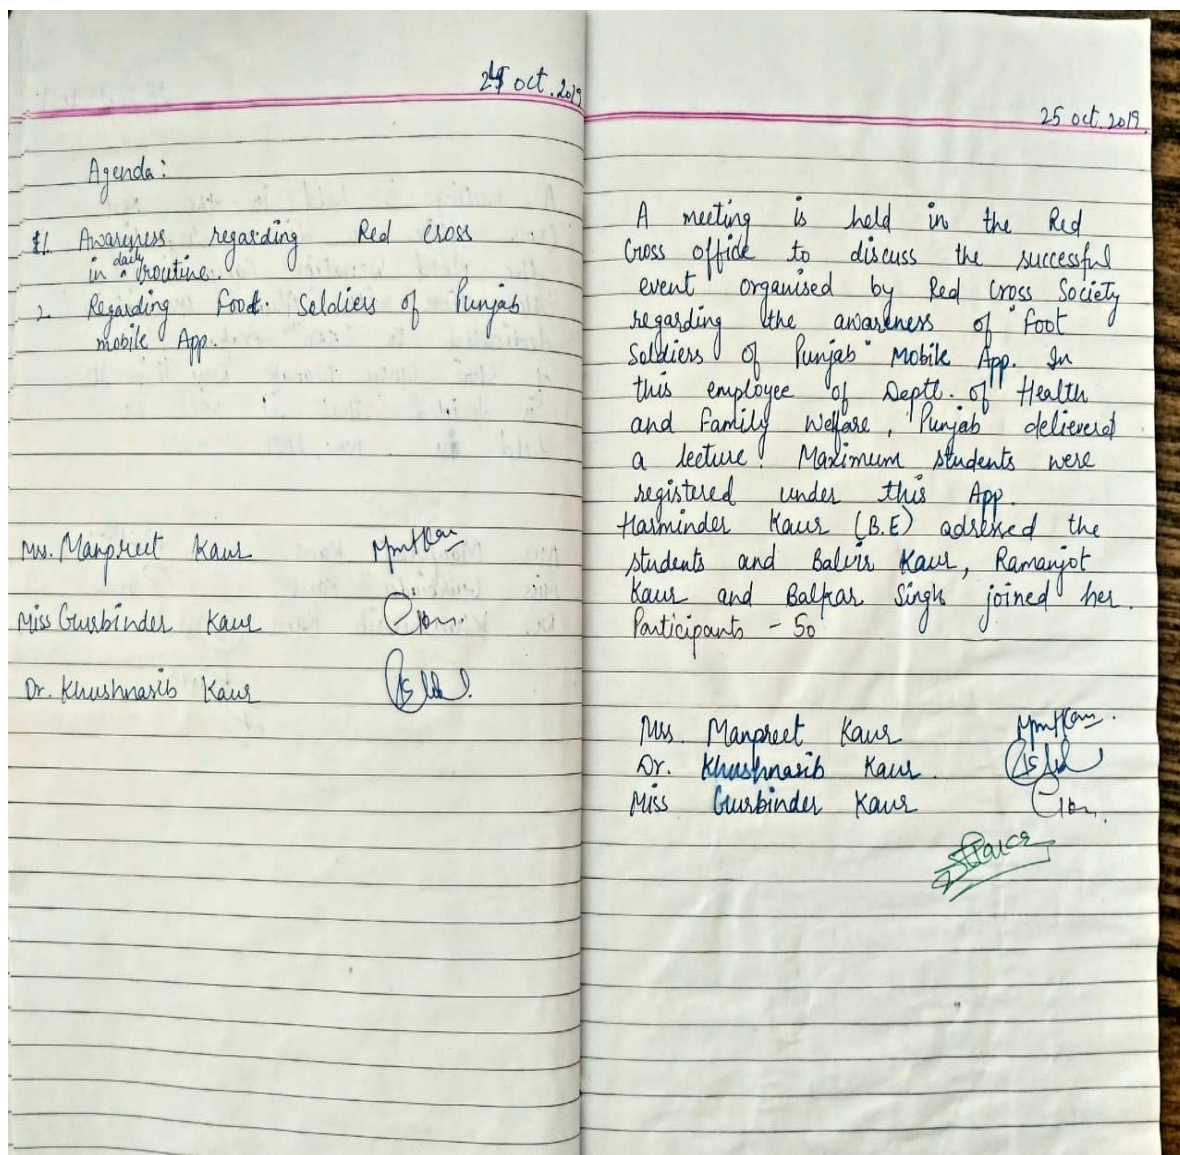 24 oct. 2019
Agenda:
1. Awareness regarding Red cross
in daily routine.
2. Regarding Foot Soldiers of Punjab
mobile App.
Mrs. Manpreet Kaur
Miss Gurbinder Kaur
Dr. Khushnasib Kaur
25 oct. 2019.
A meeting is held in the Red
Cross office to discuss the successful
event organised by Red Cross Society
regarding the awareness of "Foot
Soldiers of Punjab" Mobile App. In
this employee of Deptt. of Health
and Family Welfare, Punjab delievered
a lecture. Maximum students were
registered under this App.
Harminder Kaur (B.E) adressed the
students and Balvir Kaur, Ramanjot
Kaur and Balkar Singh joined her.
Participants - 50
Mrs. Manpreet Kaur
Dr. Khushnasib Kaur.
Miss Gurbinder Kaur